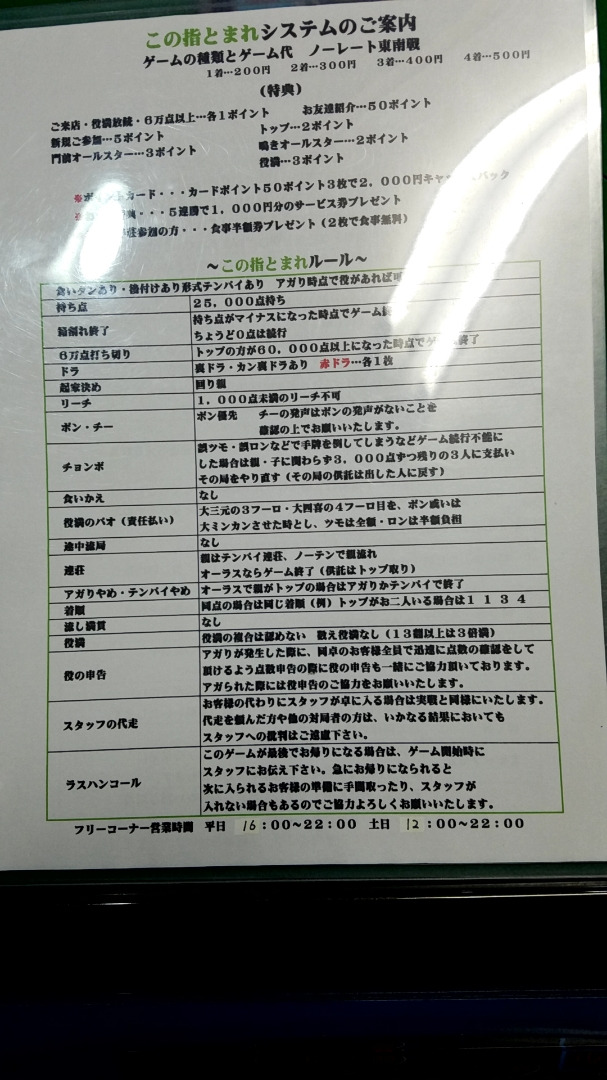 この指とまれシステムのご案内
ゲームの種類とゲーム代 ノーレート東南戦
1着…200円 2着…300円 3着…400円 4着…500円
(特典)
ご来店・役満放銃・6万点以上…各1ポイント お友達紹介…50ポイント
新規ご参加…5ポイント トップ…2ポイント
門前オールスター…3ポイント 鳴きオールスター…2ポイント
役満…3ポイント
※ポイントカード・・・カードポイント50ポイント3枚で2,000円キャッシュバック
・・・5連勝で1,000円分のサービス券プレゼント
荘参加の方・・・食事半額券プレゼント(2枚で食事無料)
～この指とまれルール～
食いタンあり・後付けあり形式テンパイあり アガり時点で役があれば可
持ち点 25,000点持ち
箱割れ終了 持ち点がマイナスになった時点でゲーム終
ちょうど0点は続行
6万点打ち切り トップの方が60,000点以上になった時点でゲーム終了
ドラ 裏ドラ・カン裏ドラあり 赤ドラ…各1枚
起家決め 回り親
リーチ 1,000点未満のリーチ不可
ポン・チー ポン優先 チーの発声はポンの発声がないことを
確認の上でお願いいたします。
チョンボ 誤ツモ・誤ロンなどで手牌を倒してしまうなどゲーム続行不能に
した場合は親・子に関わらず3,000点ずつ残りの3人に支払い
その局をやり直す(その局の供託は出した人に戻す)
食いかえ なし
役満のパオ(責任払い) 大三元の3フーロ・大四喜の4フーロ目を、ポン或いは
大ミンカンさせた時とし、ツモは全額・ロンは半額負担
途中流局 なし
連荘 親はテンパイ連荘、ノーテンで親流れ
オーラスならゲーム終了(供託はトップ取り)
アガりやめ・テンパイやめ オーラスで親がトップの場合はアガりかテンパイで終了
着順 同点の場合は同じ着順(例)トップがお二人いる場合は1 1 3 4
流し満貫 なし
役満 役満の複合は認めない 数え役満なし(13翻以上は3倍満)
役の申告 アガりが発生した際に、同卓のお客様全員で迅速に点数の確認をして
頂けるよう点数申告の際に役の申告も一緒にご協力頂いております。
アガられた際には役申告のご協力をお願いいたします。
スタッフの代走 お客様の代わりにスタッフが卓に入る場合は実戦と同様にいたします。
代走を頼んだ方や他の対局者の方は、いかなる結果においても
スタッフへの批判はご遠慮下さい。
ラスハンコール このゲームが最後でお帰りになる場合は、ゲーム開始時に
スタッフにお伝え下さい。急にお帰りになられると
次に入られるお客様の準備に手間取ったり、スタッフが
入れない場合もあるのでご協力よろしくお願いいたします。
フリーコーナー営業時間 平日 16:00～22:00 土日 12:00～22:00